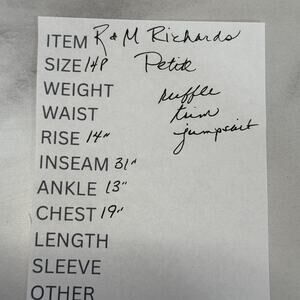 ITEM R & M Richards
SIZE 14P Petite
WEIGHT ruffle
WAIST trim
RISE 14" jumpsuit
INSEAM 31"
ANKLE 13"
CHEST 19"
LENGTH
SLEEVE
OTHER